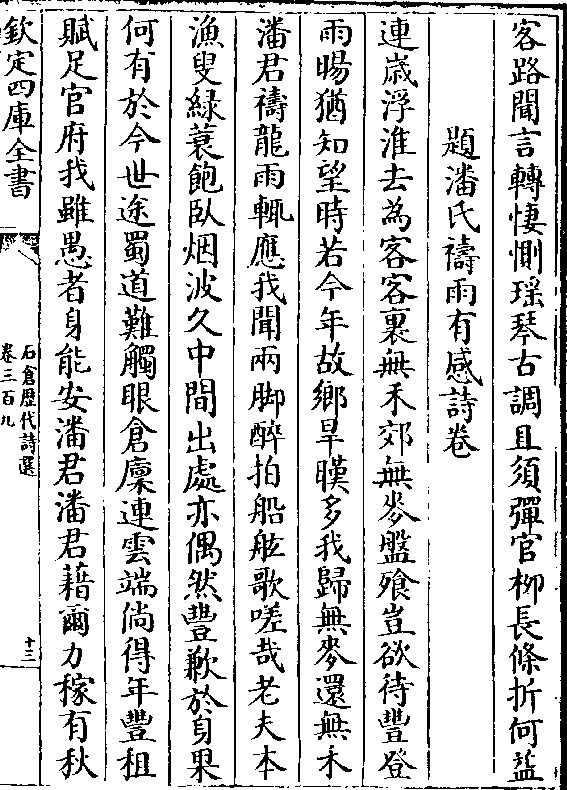 客路聞言轉悽惻瑶琴古調且須彈官栁長條折何益
題潘氏禱雨有感詩卷
連歳浮淮去為客客裏無禾郊無麥盤飱豈欲待豐登
雨暘猶知望時若今年故鄉旱暵多我歸無麥還無禾
潘君禱龍雨輒應我聞兩脚醉拍船舷歌嗟哉老夫本
漁叟緑蓑飽臥烟波久中間出處亦偶然豐歉於身果
何有於今世途蜀道難觸眼倉廪連雲端倘得年豐租
賦足官府我雖愚者身能安潘君潘君藉爾力稼有秋
欽定四庫全書
石倉歴代詩選
卷三百九
十三